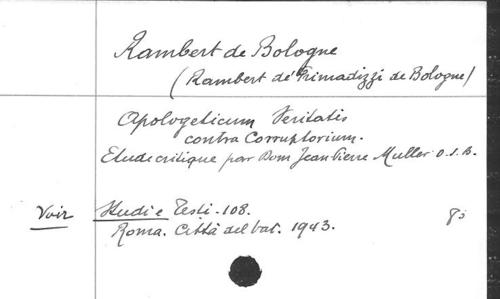 Rambert de Bologne
(Rambert de' Primadizzi de Bologne)
Apologeticum Veritatis
contra Corruptorium.
Etude critique par Dom Jean Pierre Muller O.S.B.
Voir Studi e Testi. 108.
Roma. Città del Vat. 1943. 8º